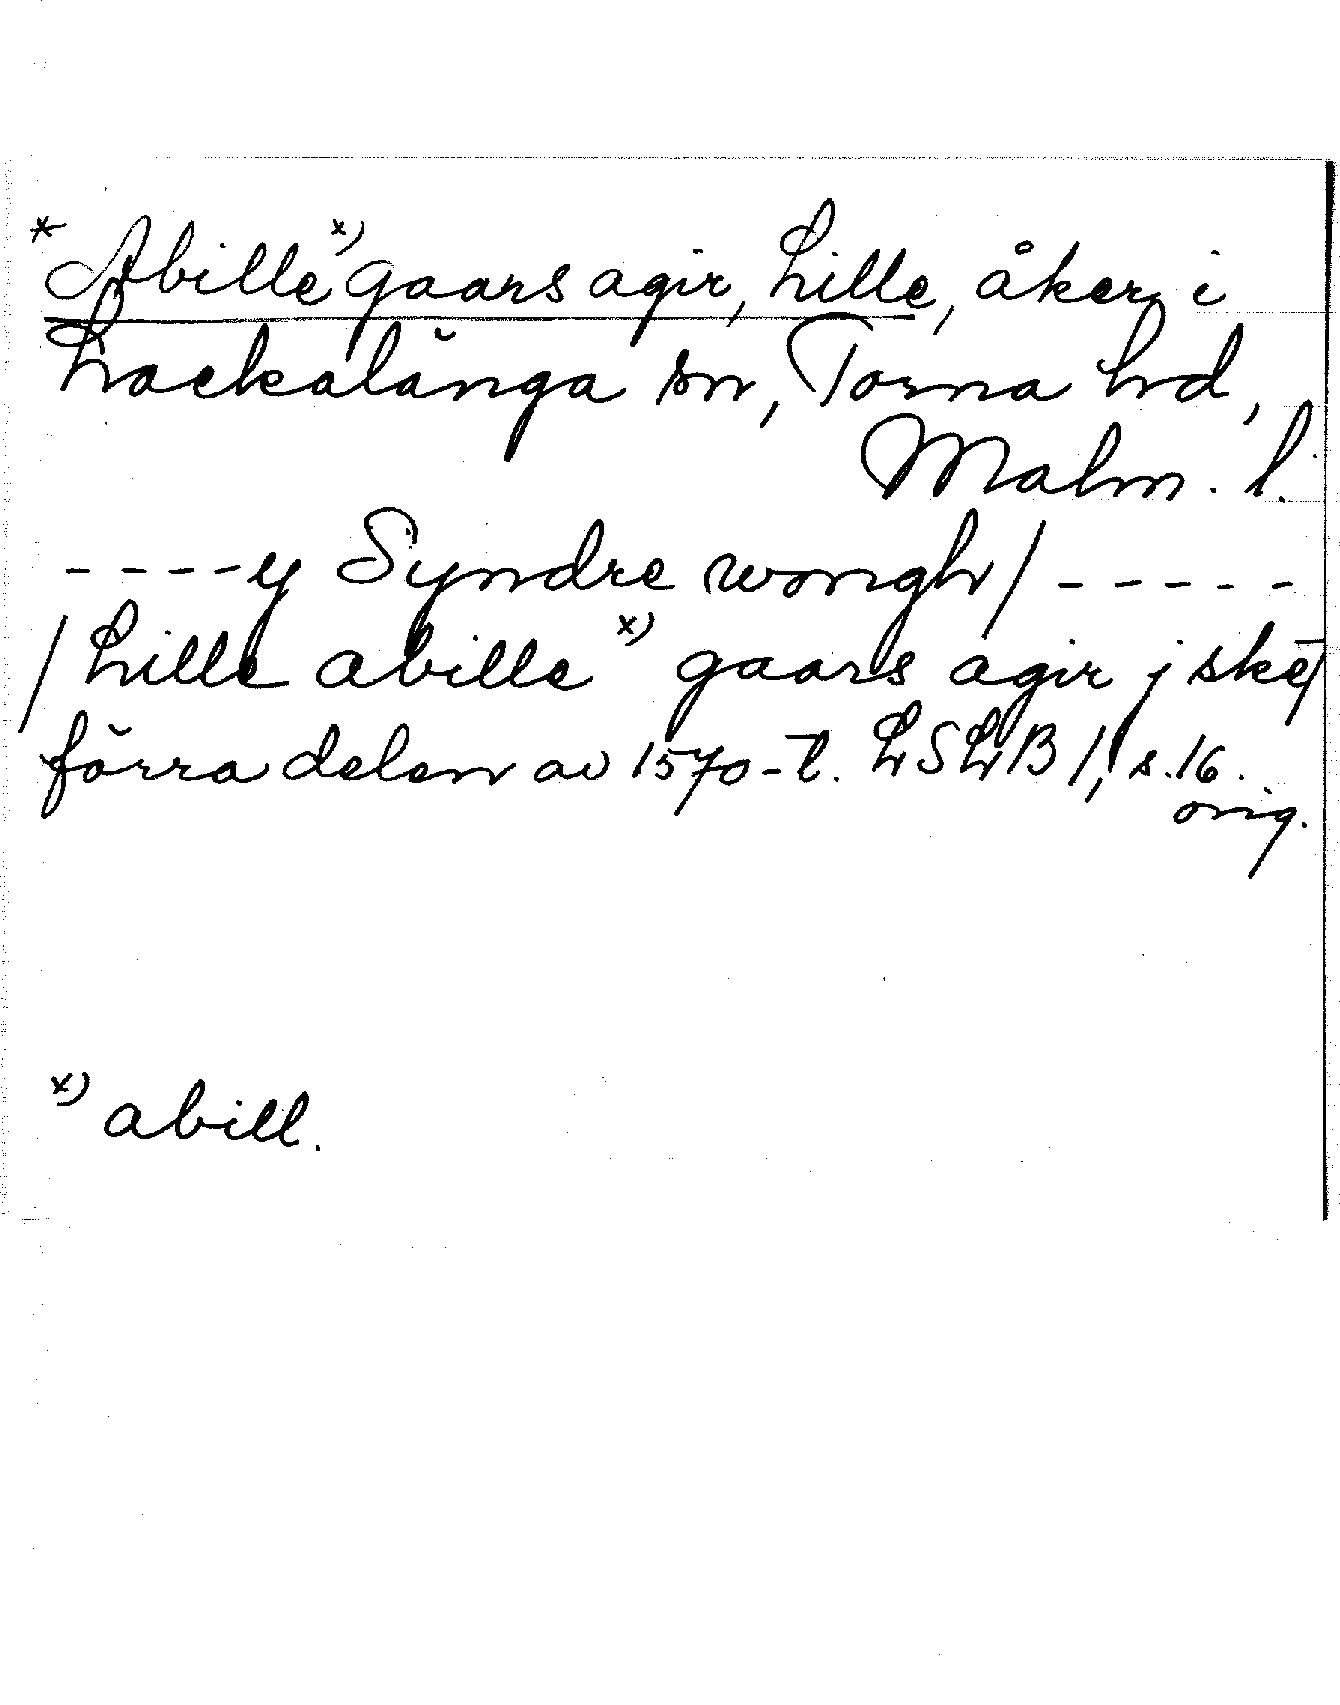 * Abille x) gaars agir, Lille, åker i
Lackalänga sn, Torna hd,
Malm. l.
----y Syndre wongh/-----
/Lille abille x) gaars agir j ske/
förra delen av 1570-t. LSLB 1, s.16.
orig.
x) abill.